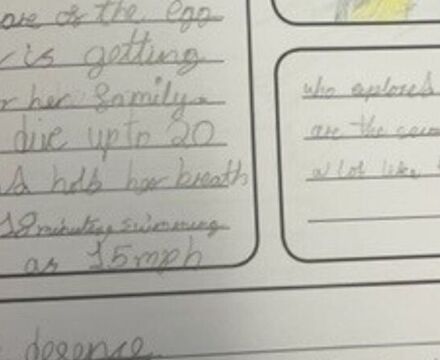 of the egg
is getting
her family.
dive up to 20
hold her breath
18 minutes swimming
as 15 mph
who explored
are the
a lot like